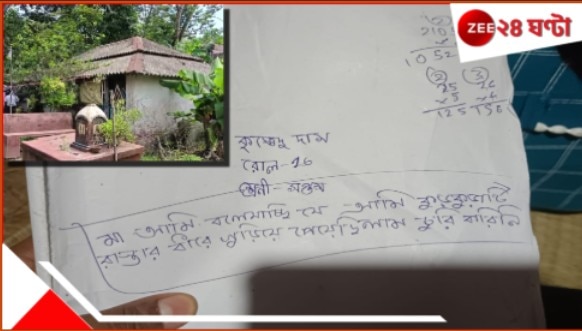 ZEE ২৪ ঘণ্টা
2 3
25 26
125
কৃষ্ণেন্দু দাস
রোল-16
শ্রেনী-সপ্তম
মা আমি বলেযাচ্ছি যে আমি কুড়কুড়াটি
রাস্তার ধারে কুড়িয়ে পেয়েছিলাম চুরি করিনি